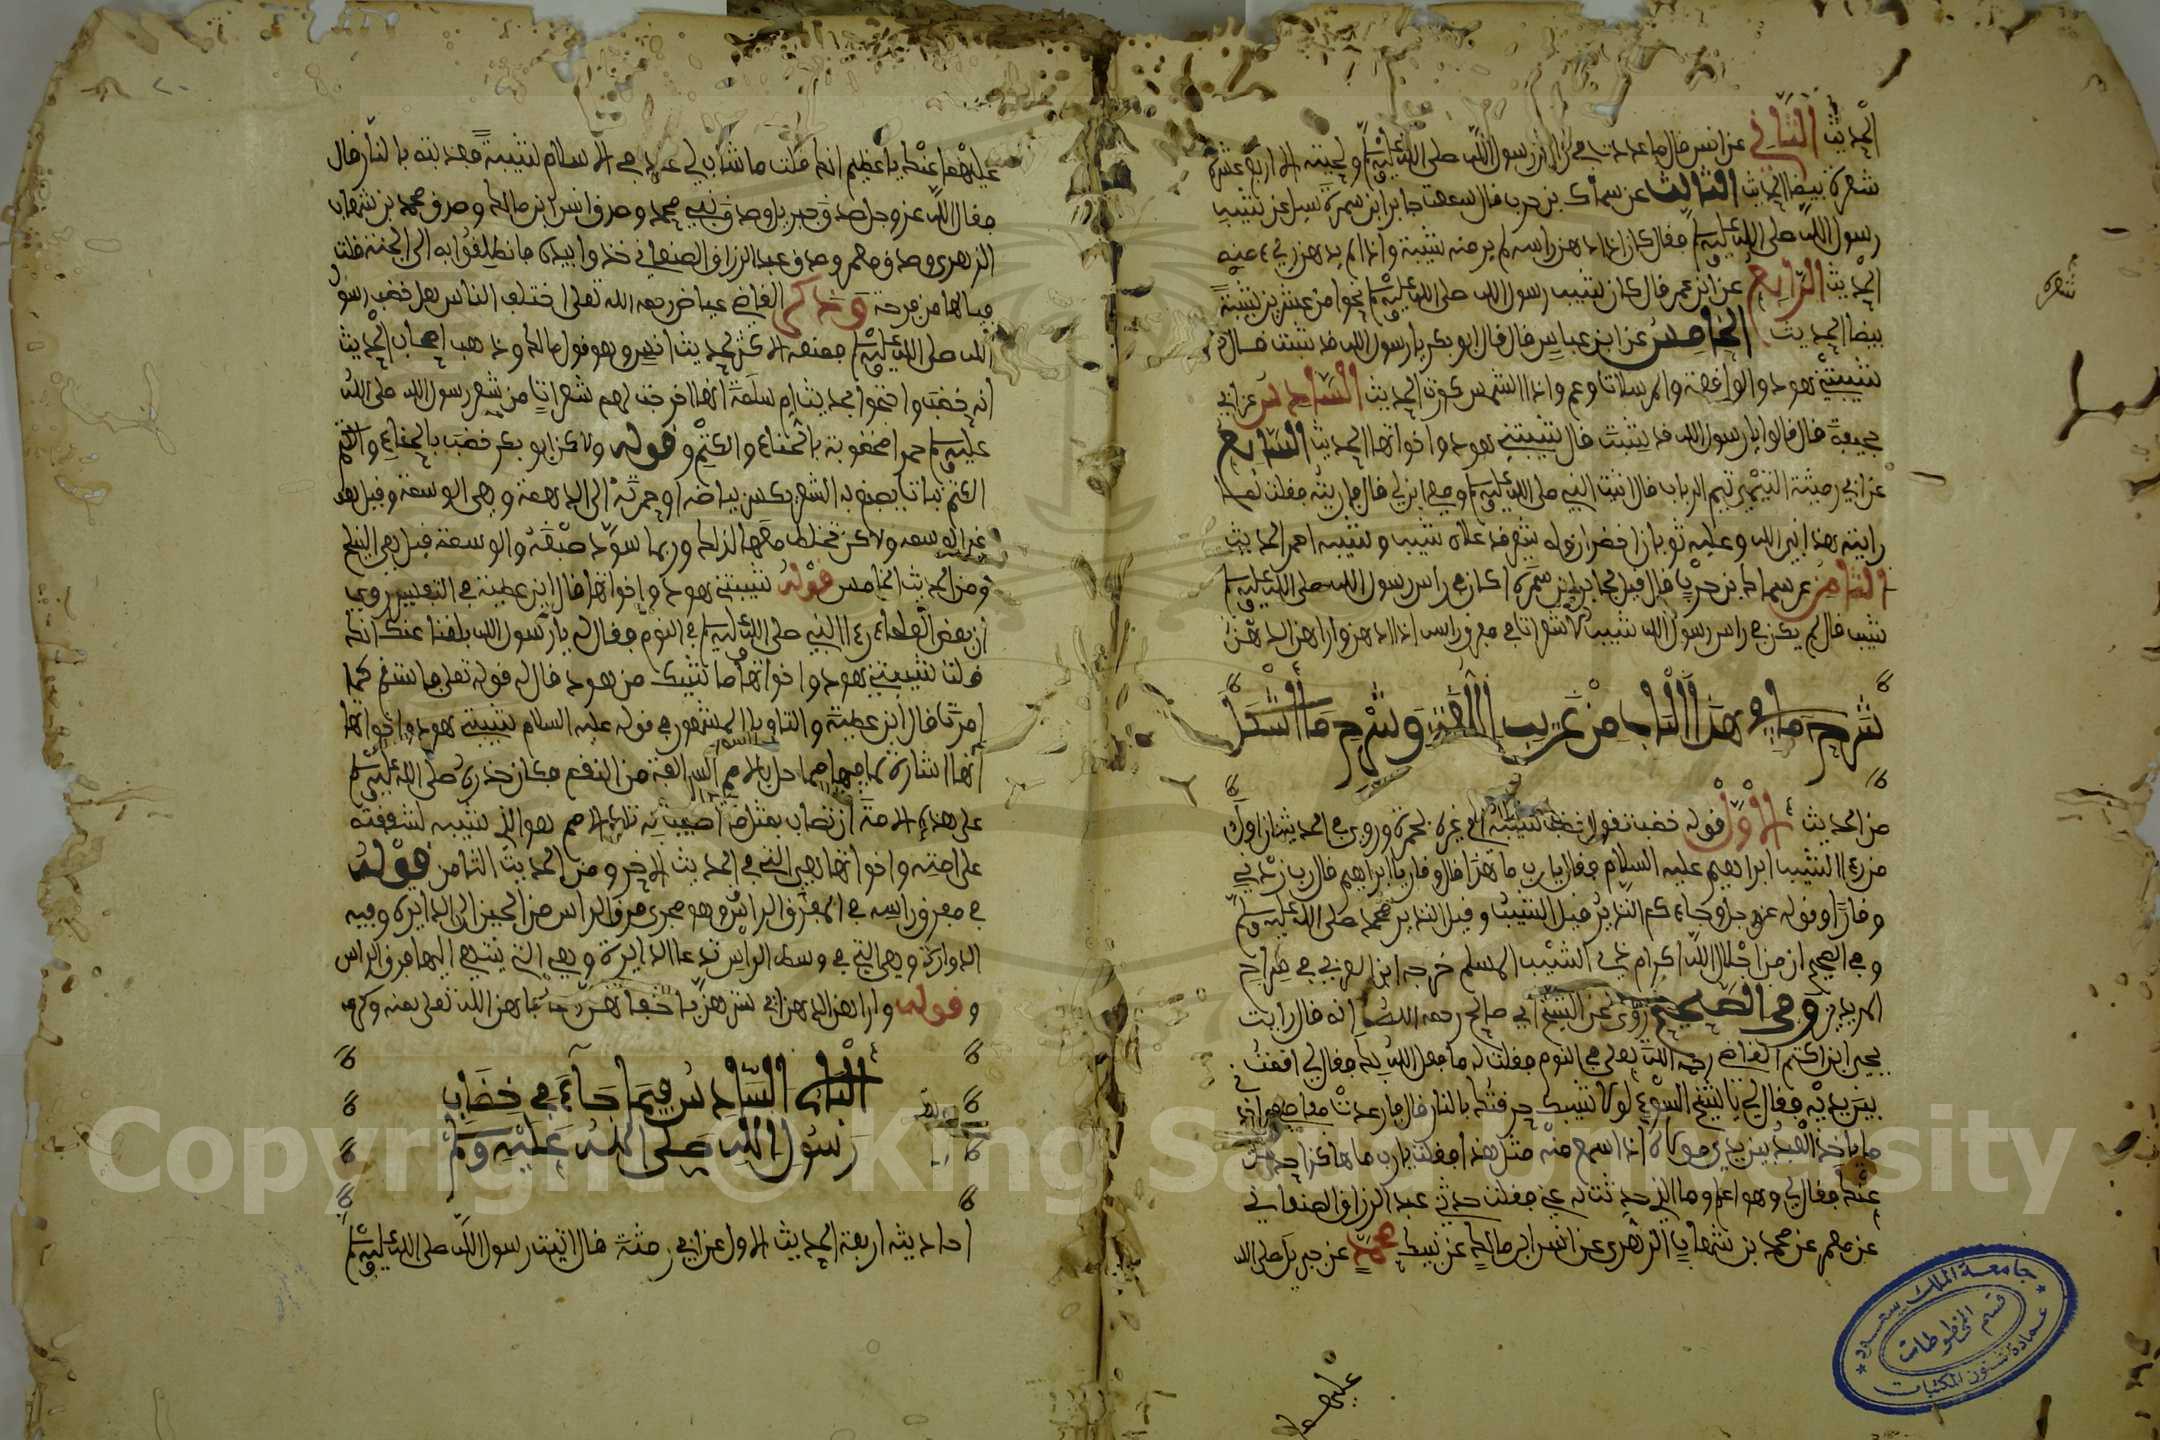 الحديث الثاني عن انس قال ما عددت في راس رسول الله صلى الله عليه وسلم ولحيته الا اربع عشرة
شعرة بيضا الحديث الثالث عن سماك بن حرب قال سمعت جابر ابن سمرة سيل عن شيب
رسول الله صلى الله عليه وسلم فقال كان اذا دهن راسه لم ير منه شيبة واذا لم يدهن ريء منه
شعره
الحديث الرابع عن ابن عمر قال كان شيب رسول الله صلى الله عليه وسلم نحوا من عشرين شيبة
بيضا الحديث الخامس عن ابن عباس قال قال ابو بكر يا رسول الله قد شبت قال
شيبتني هود والواقعة والمرسلات وعم واذا الشمس كورت الحديث السادس عن ابي
جحيفة قال قالوا يا رسول الله قد شبت قال شيبتني هود واخواتها الحديث السابع
عن ابي رمثة التيمي تيم الرباب قال اتيت النبي صلى الله عليه وسلم ومعي ابن لي قال فاريته فقلت لما
رايته هذا نبي الله وعليه ثوبان اخضران وله شعر قد علاه شيب وشيبه احمر الحديث
الثامن عن سماك بن حرب قال قيل لجابر ابن سمرة اكان في راس رسول الله صلى الله عليه وسلم
شيب قال لم يكن في راس رسول الله شيب الا شعرات في مفرق راسه اذا ادهن واراهن الدهن
شرح ما في هذا الباب من غريب اللغة وشرح ما اشكل
من الحديث الاول قوله
من رءا الشيب ابراهيم عليه السلام فقال يا رب ما هذا قال وقار يا ابراهيم قال رب زدني
وقارا وقوله عز وجل وجاءكم النذير قيل الشيب وقيل النذير محمد صلى الله عليه وسلم
وفي الصحيح ان من اجلال الله اكرام ذي الشيب المسلم خرجه ابن العربي في سراج
المريدين وفي الصحيح روي عن الشيخ ابي صالح رحمه الله انه قال رايت
يحيى ابن اكثم القاضي رحمه الله تعلى في النوم فقلت له ما فعل الله بك فقال لي اقفني
بين يديه فقال لي يا شيخ السوء لولا شيبك حرقتك بالنار قال فارعدت
ما ياخذ العبد بين يدي مولاه اذا سمع منه مثل هذا فقلت يا رب ما هكذا حدثت
عنك فقال لي وهو اعلم وما الذي حدثت به عني فقلت حدثني عبد الرزاق الصنعاني
عن معمر عن محمد بن شهاب الزهري عن انس ابن مالك عن نبيك محمد عن جبريل صلى الله
عليهما
عليهما عنك يا عظيم انك قلت ما شاب لي عبد في الاسلام شيبة فعذبته بالنار قال
فقال الله عز وجل صدق جبريل وصدق نبيي محمد وصدق انس ابن مالك وصدق محمد بن شهاب
الزهري وصدق معمر وصدق عبد الرزاق الصنعاني خذوا بيده فانطلقوا به الى الجنة قلت
فيا لها من فرحة وذكر القاضي عياض رحمه الله تعلى اختلف الناس هل خضب رسول
الله صلى الله عليه وسلم فمنعه الاكثر لحديث انس وهو قول مالك وذهب اصحاب الحديث
انه خضب واحتجوا بحديث ام سلمة انها اخرجت لهم شعرات من شعر رسول الله صلى الله
عليه وسلم حمرا مخضوبة بالحناء والكتم وقوله ولاكن ابو بكر خضب بالحناء والكتم
الكتم نبات يصبغ به الشعر يكسر بياضه او حمرته الى الدهمة وهي الوسمة وقيل هو
غير الوسمة ولاكن تخلط معها لذلك وربما سود صبغه والوسمة قيل هي النيلج
ومن الحديث الخامس قوله شيبتني هود واخواتها قال ابن عطية في التفسير روي
ان بعض العلماء رءا النبي صلى الله عليه وسلم في النوم فقال له يا رسول الله بلغنا عنك انك
قلت شيبتني هود واخواتها فما شيبك من هود قال له قوله تعلى فاستقم كما
امرت قال ابن عطية والتاويل المشهور في قوله عليه السلام شيبتني هود واخواتها
انها اشارة لما فيها مما حل بالامم السالفة من النقم فكان حذره صلى الله عليه وسلم
على هذه الامة ان تصاب بمثل ما اصيبت به تلك الامم هو الذي شيبه لشفقته
على امته واخواتها هي التي في الحديث الاخر ومن الحديث الثامن قوله
في مفرق راسه في المفرق الراس وهو مجرى فرق الراس من الجبين الى الدايرة وفيه
الدوارة وهي التي في وسط الراس تدعا الدايرة وهي التي ينتهي اليها فرق الراس
وقوله واراهن الدهن اي سترهن
الباب السادس فيما جاء في خضاب
رسول الله صلى الله عليه وسلم
احاديثه اربعة الحديث الاول عن ابي رمثة قال اتيت رسول الله صلى الله عليه وسلم
جامعة الملك سعود
عمادة شئون المكتبات
قسم المخطوطات
Copyright © King Saud University